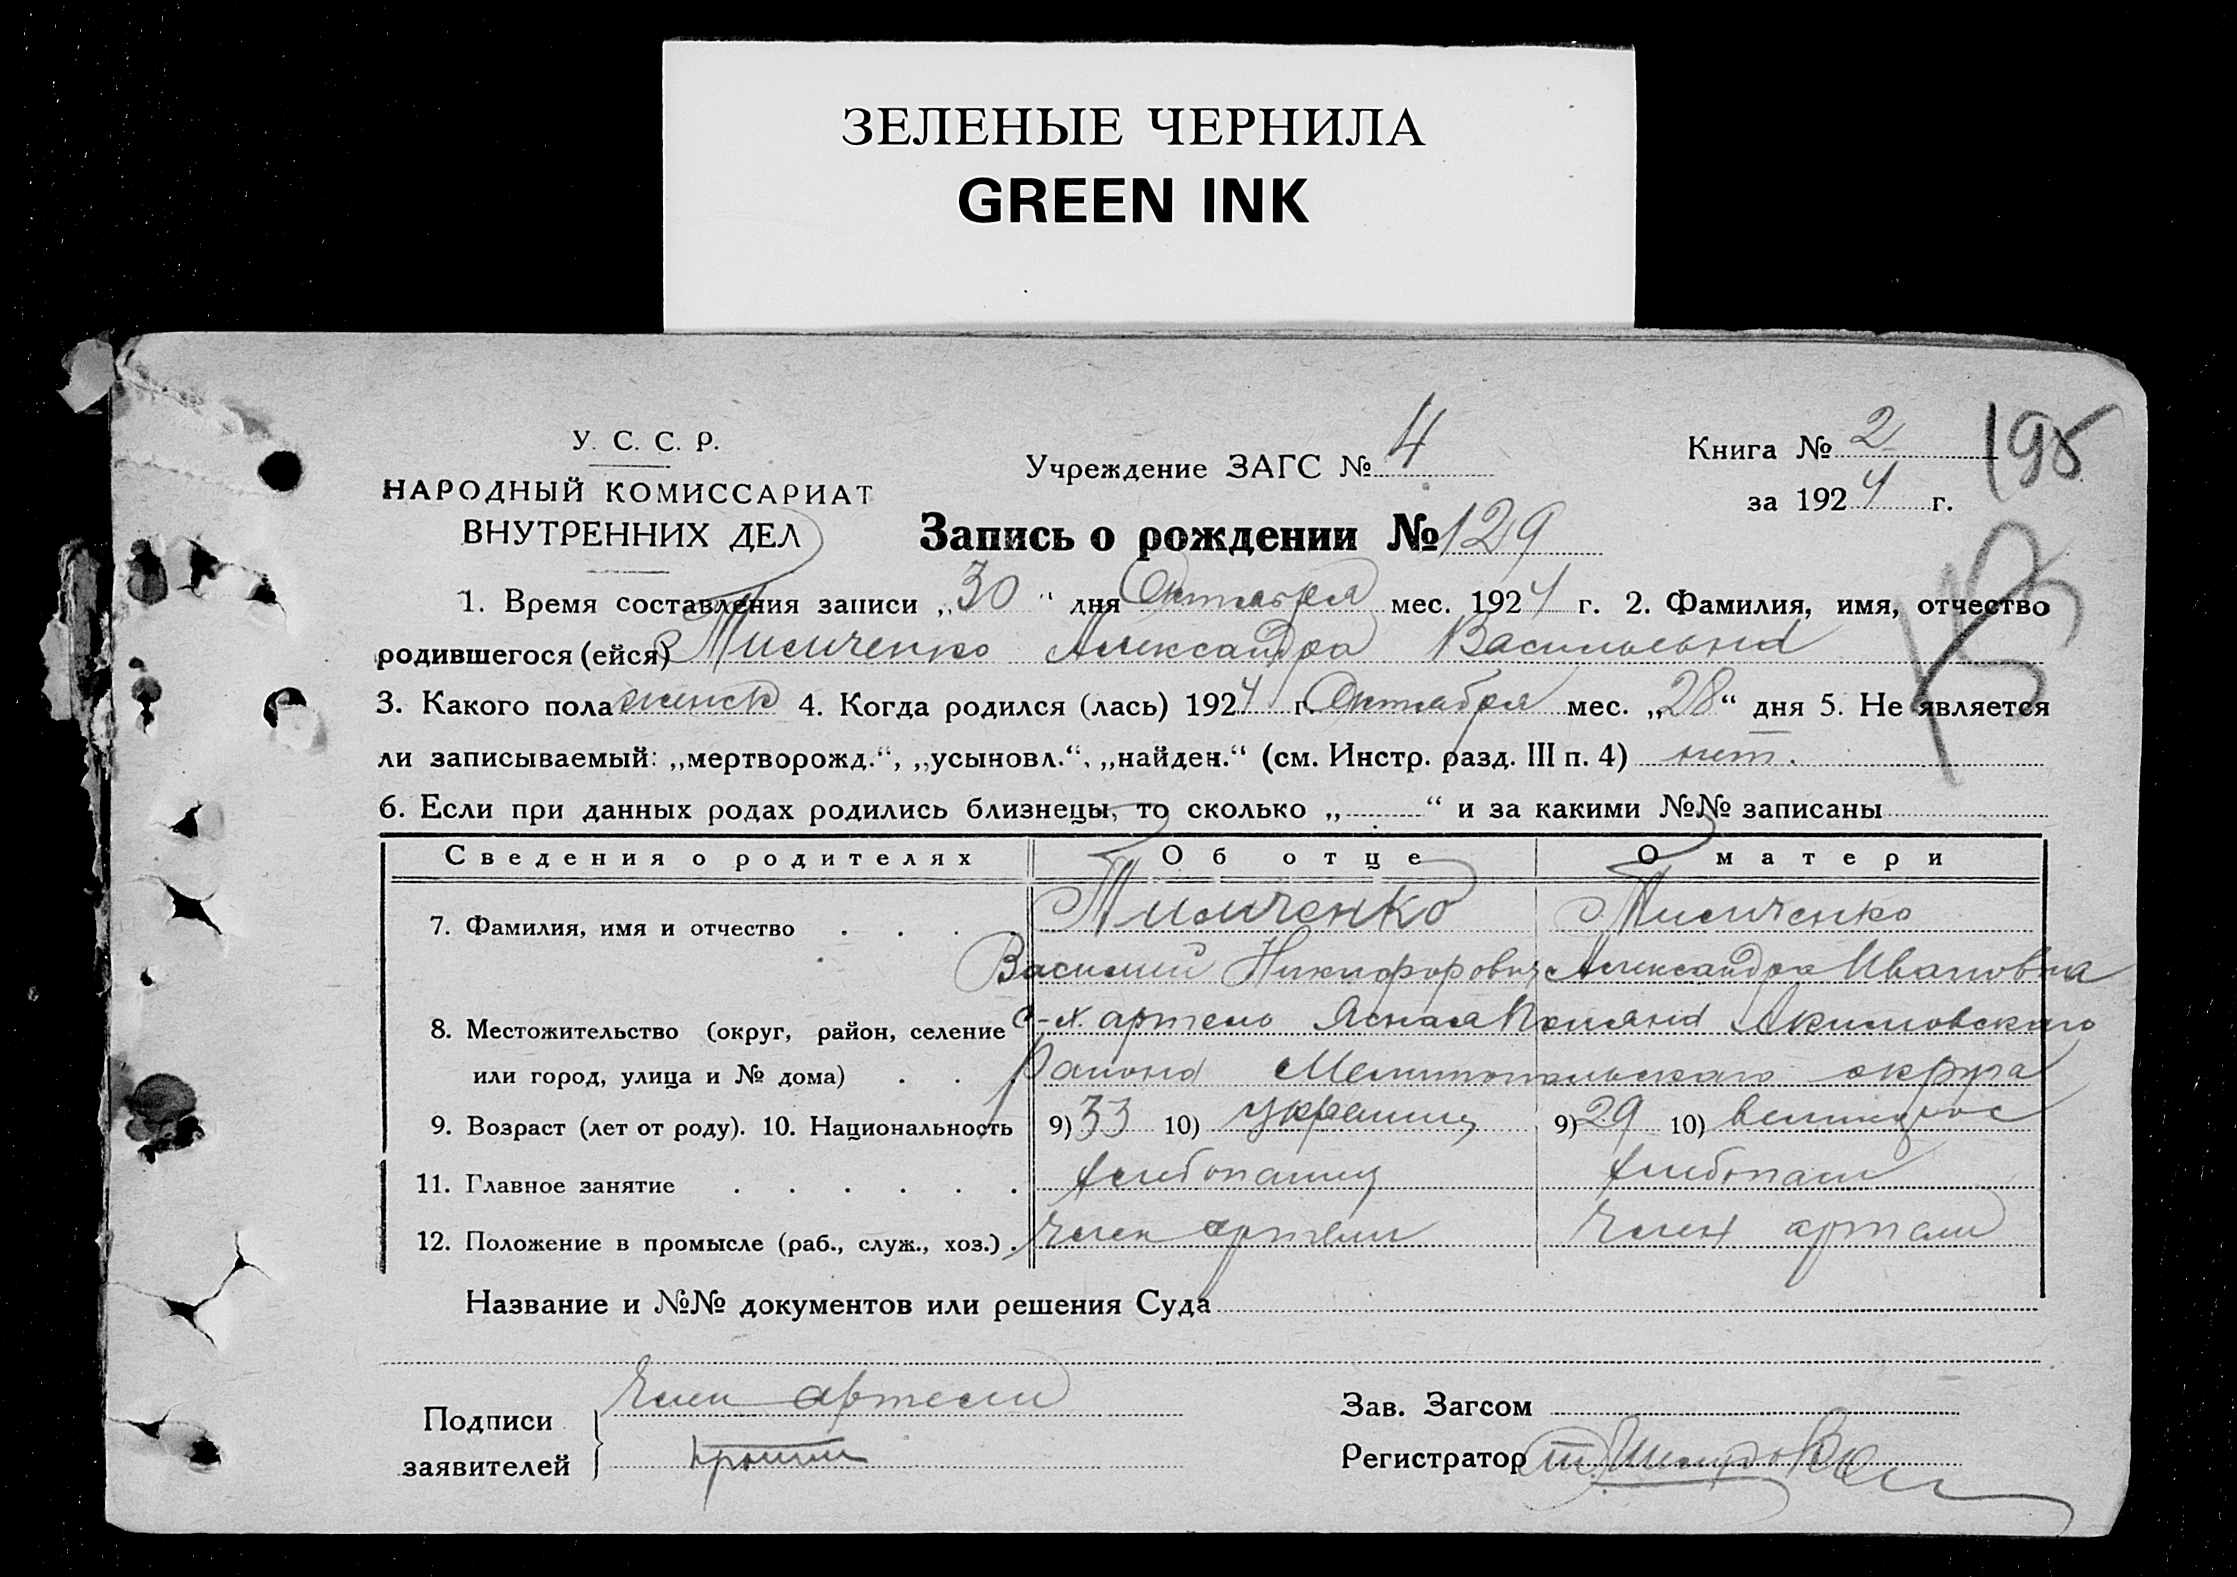 ЗЕЛЕНЫЕ ЧЕРНИЛА
GREEN INK
У. С. С. Р.
НАРОДНЫЙ КОМИССАРИАТ
ВНУТРЕННИХ ДЕЛ
Учреждение ЗАГС № 4
Книга № 2
195
за 1924 г.
Запись о рождении № 129
1. Время составления записи „30" дня Октября мес. 1924 г. 2. Фамилия, имя, отчество
родившегося (ейся) Тимченко Александра Васильевна
3. Какого пола женск 4. Когда родился (лась) 1924 г. Октября мес. „28" дня 5. Не является
ли записываемый: „мертворожд.", „усыновл.", „найден." (см. Инстр. разд. III п. 4) нет.
6. Если при данных родах родились близнецы, то сколько „ " и за какими №№ записаны
Сведения о родителях Об отце О матери
7. Фамилия, имя и отчество Тимченко Тимченко
Василий Никифорович Александра Ивановна
8. Местожительство (округ, район, селение с-х. артель Ясная Поляна Акимовского
или город, улица и № дома) района Мелитопольского округа
9. Возраст (лет от роду). 10. Национальность 9) 33 10) украинц 9) 29 10) великорос
11. Главное занятие хлебопашец хлебопаш
12. Положение в промысле (раб., служ., хоз.) член артели член артели
Название и №№ документов или решения Суда
Подписи заявителей член артели
Зав. Загсом
Регистратор